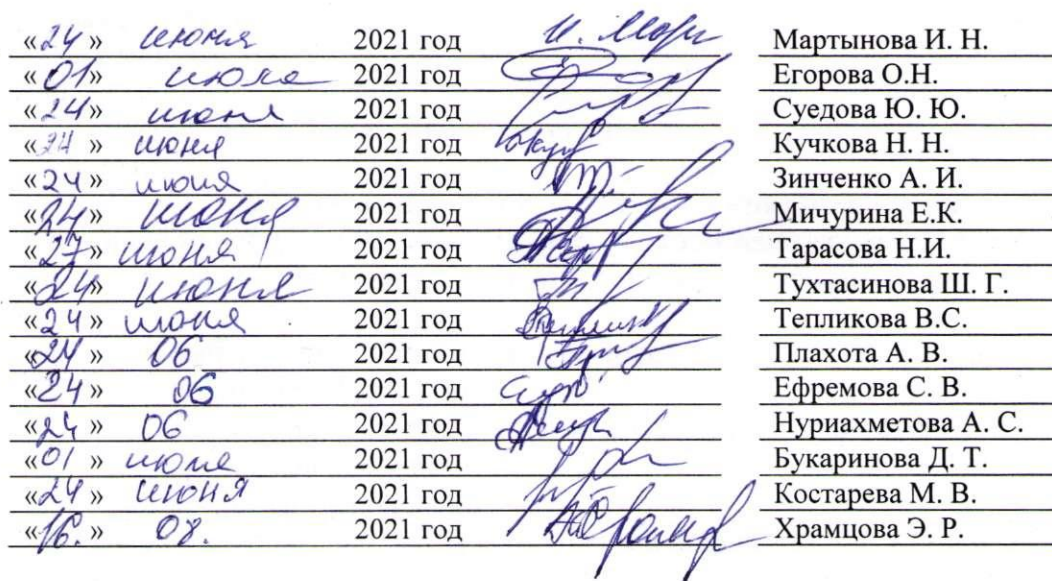 «24» июня 2021 год И. Март Мартынова И. Н.
«01» июля 2021 год Егорова О.Н.
«24» июня 2021 год Суедова Ю. Ю.
«24» июня 2021 год Кучкова Н. Н.
«24» июня 2021 год Зинченко А. И.
«24» июня 2021 год Мичурина Е.К.
«27» июня 2021 год Тарасова Н.И.
«24» июня 2021 год Тухтасинова Ш. Г.
«24» июня 2021 год Тепликова В.С.
«24» 06 2021 год Плахота А. В.
«24» 06 2021 год Ефремова С. В.
«24» 06 2021 год Нуриахметова А. С.
«01» июля 2021 год Букаринова Д. Т.
«24» июня 2021 год Костарева М. В.
«16.» 08. 2021 год Храмцова Э. Р.